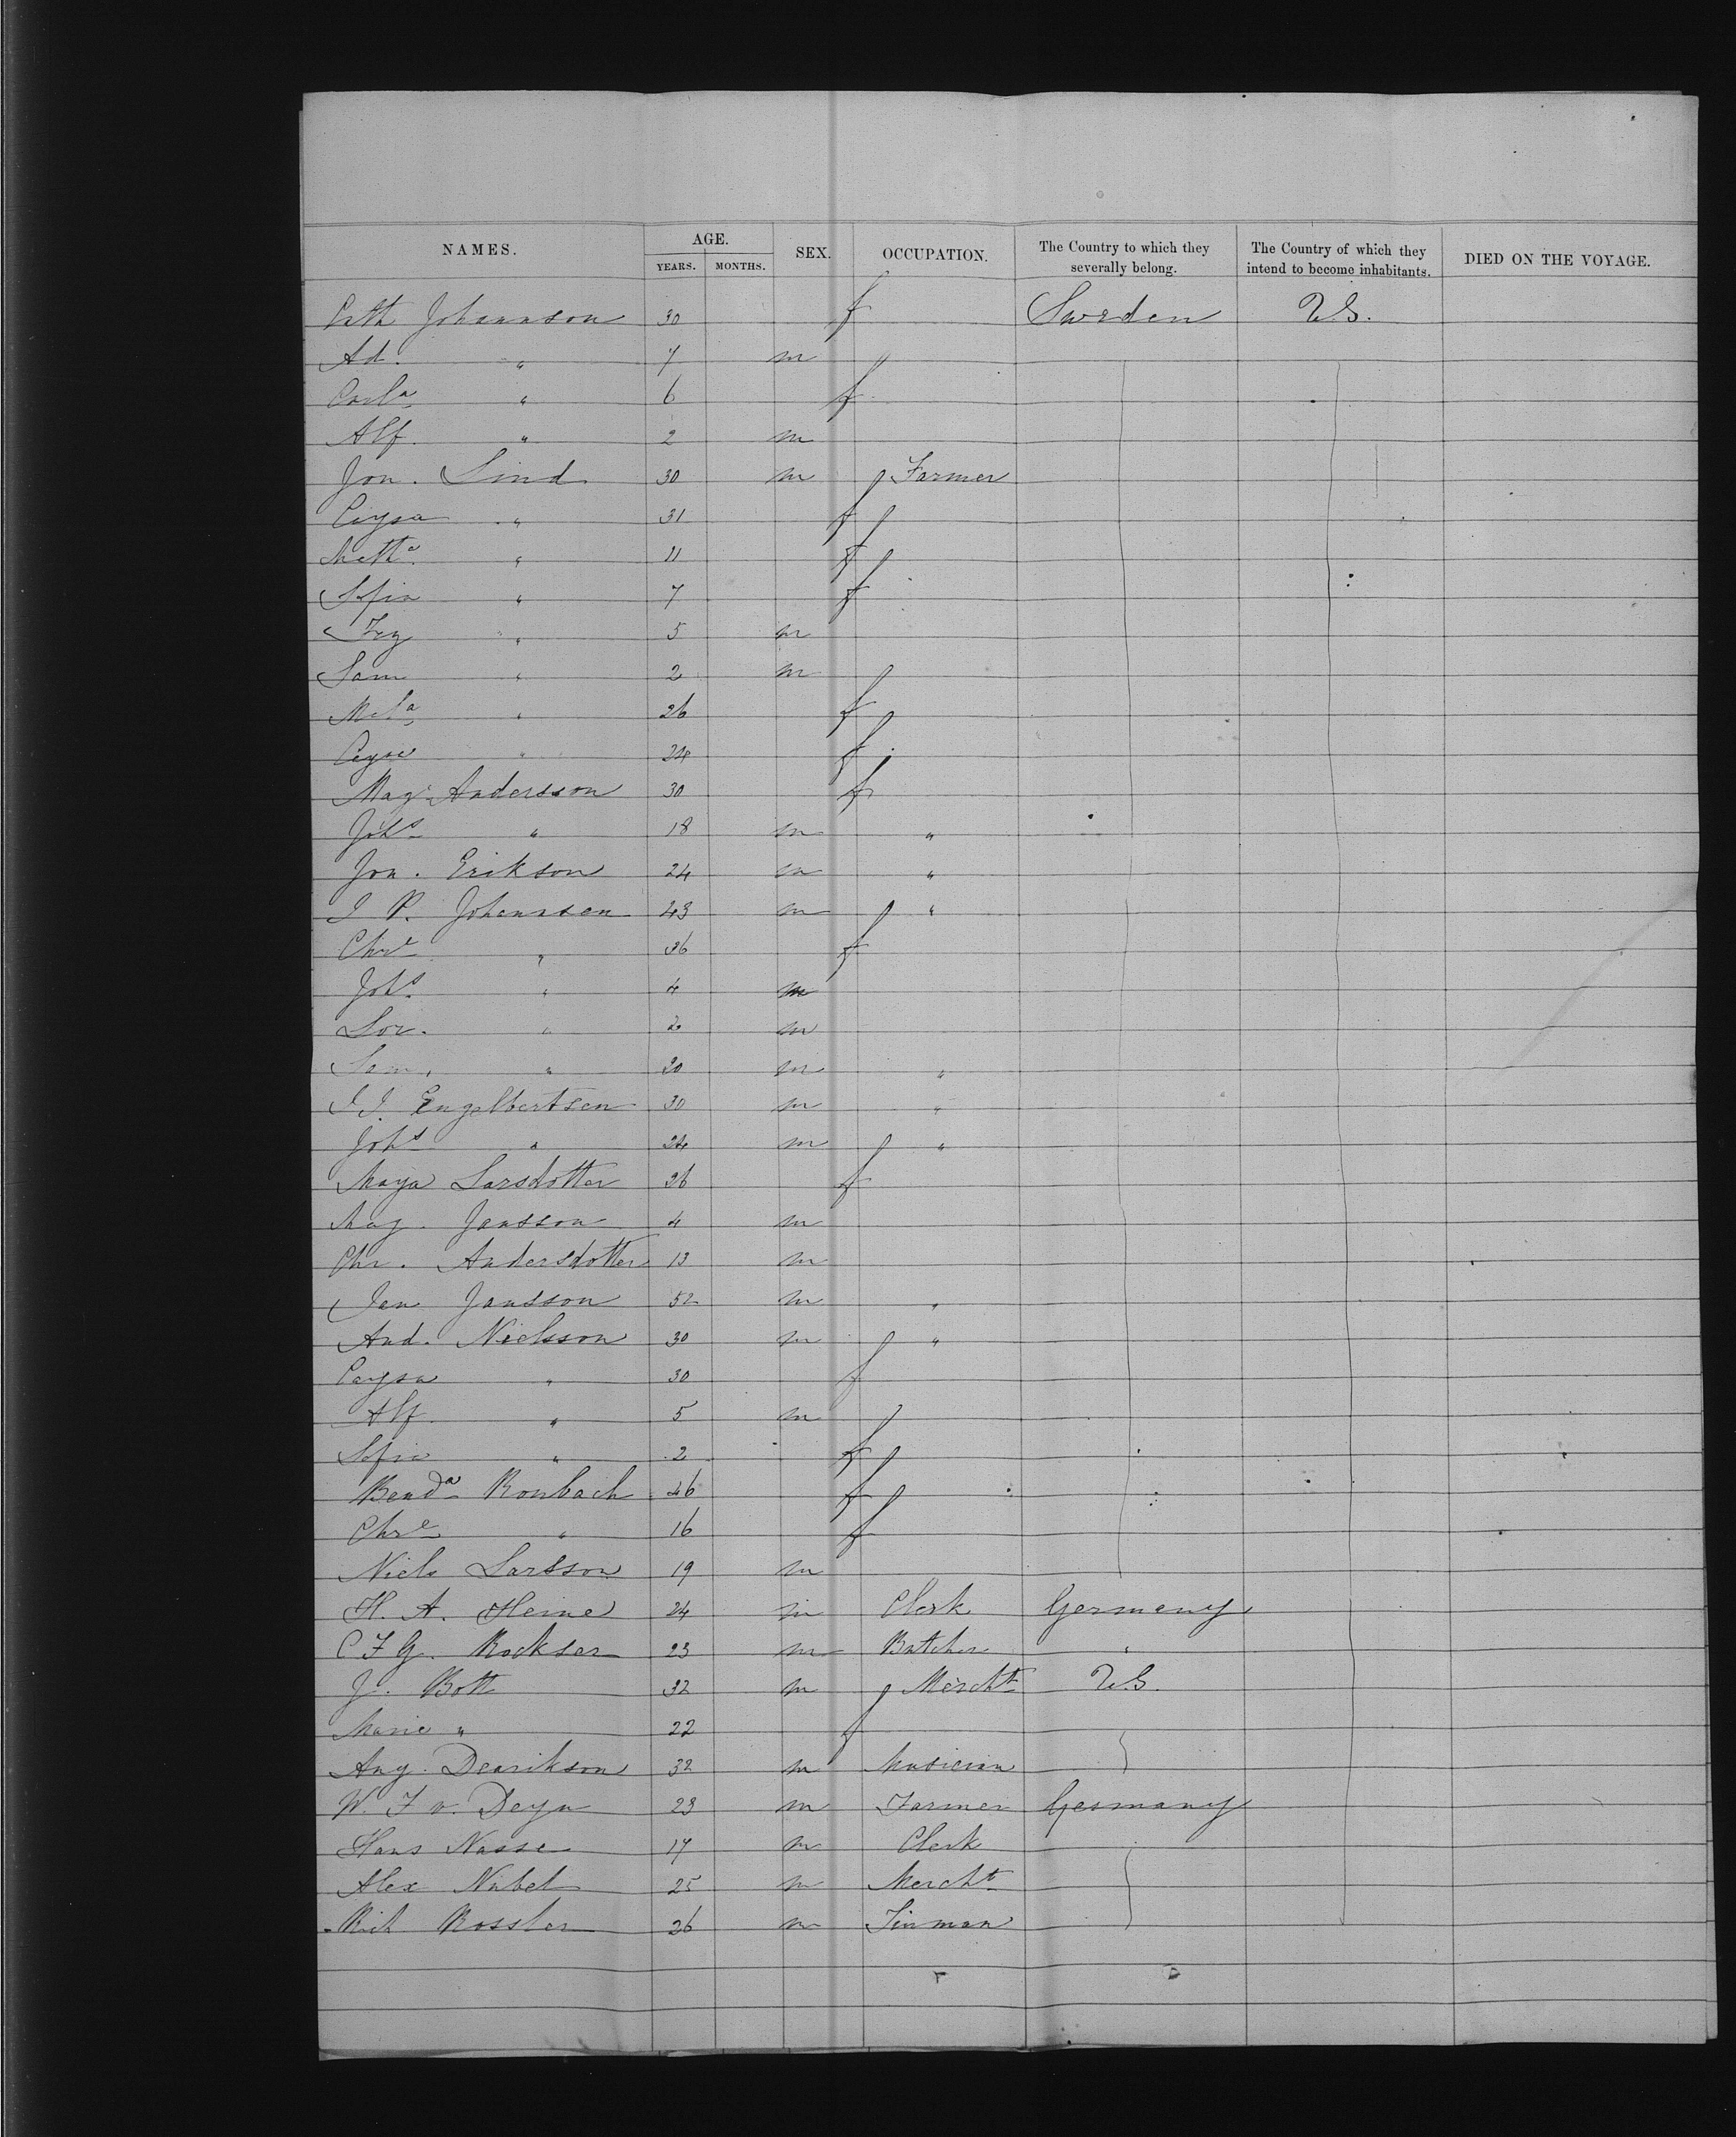 NAMES. AGE. YEARS. MONTHS. SEX. OCCUPATION. The Country to which they severally belong. The Country of which they intend to become inhabitants. DIED ON THE VOYAGE.
Cath Johannson 30 f Sweden U.S.
Ad. " 7 m "
Carla " 6 f
Alf. " 2 m
Jon. Lind 30 m Farmer
Caysa " 31 f
Metta " 11 f
Sofia " 7 f
" 5 m
Sam " 2 m
" 26 f
" 24 f
Mag. Andersson 30 f
Johs " 18 m "
Jon. Erikson 24 m "
J P. Johannsen 43 m "
Chre " 36 f
Johs. " 4 m
" 2 m
Sam. " 20 m "
J J. Engelbertsen 30 m "
Johs " 24 m "
Maya Larsdotter 26 f
Mag. Jansson 4 m
Chr. Andersdotter 13 m
Jan Jansson 52 m "
And. Nielsson 30 m "
Caysa " 30 f
Alf. " 5 m
Sofia " 2 f
Benda Ronbach 46 f
Chre " 16 f
Niels Larsson 19 m
H. A. Heine 24 m Clerk Germany
C F G. Rockser 23 m Butcher "
J. Bott 32 m Mercht U.S.
Marie " 22 f
Aug. Dearikson 32 m Musician
W. F v. Deyn 23 m Farmer Germany
Hans Nasse 17 m Clerk
Alex Nubel 25 m Mercht
Rich Rossler 26 m Tinman